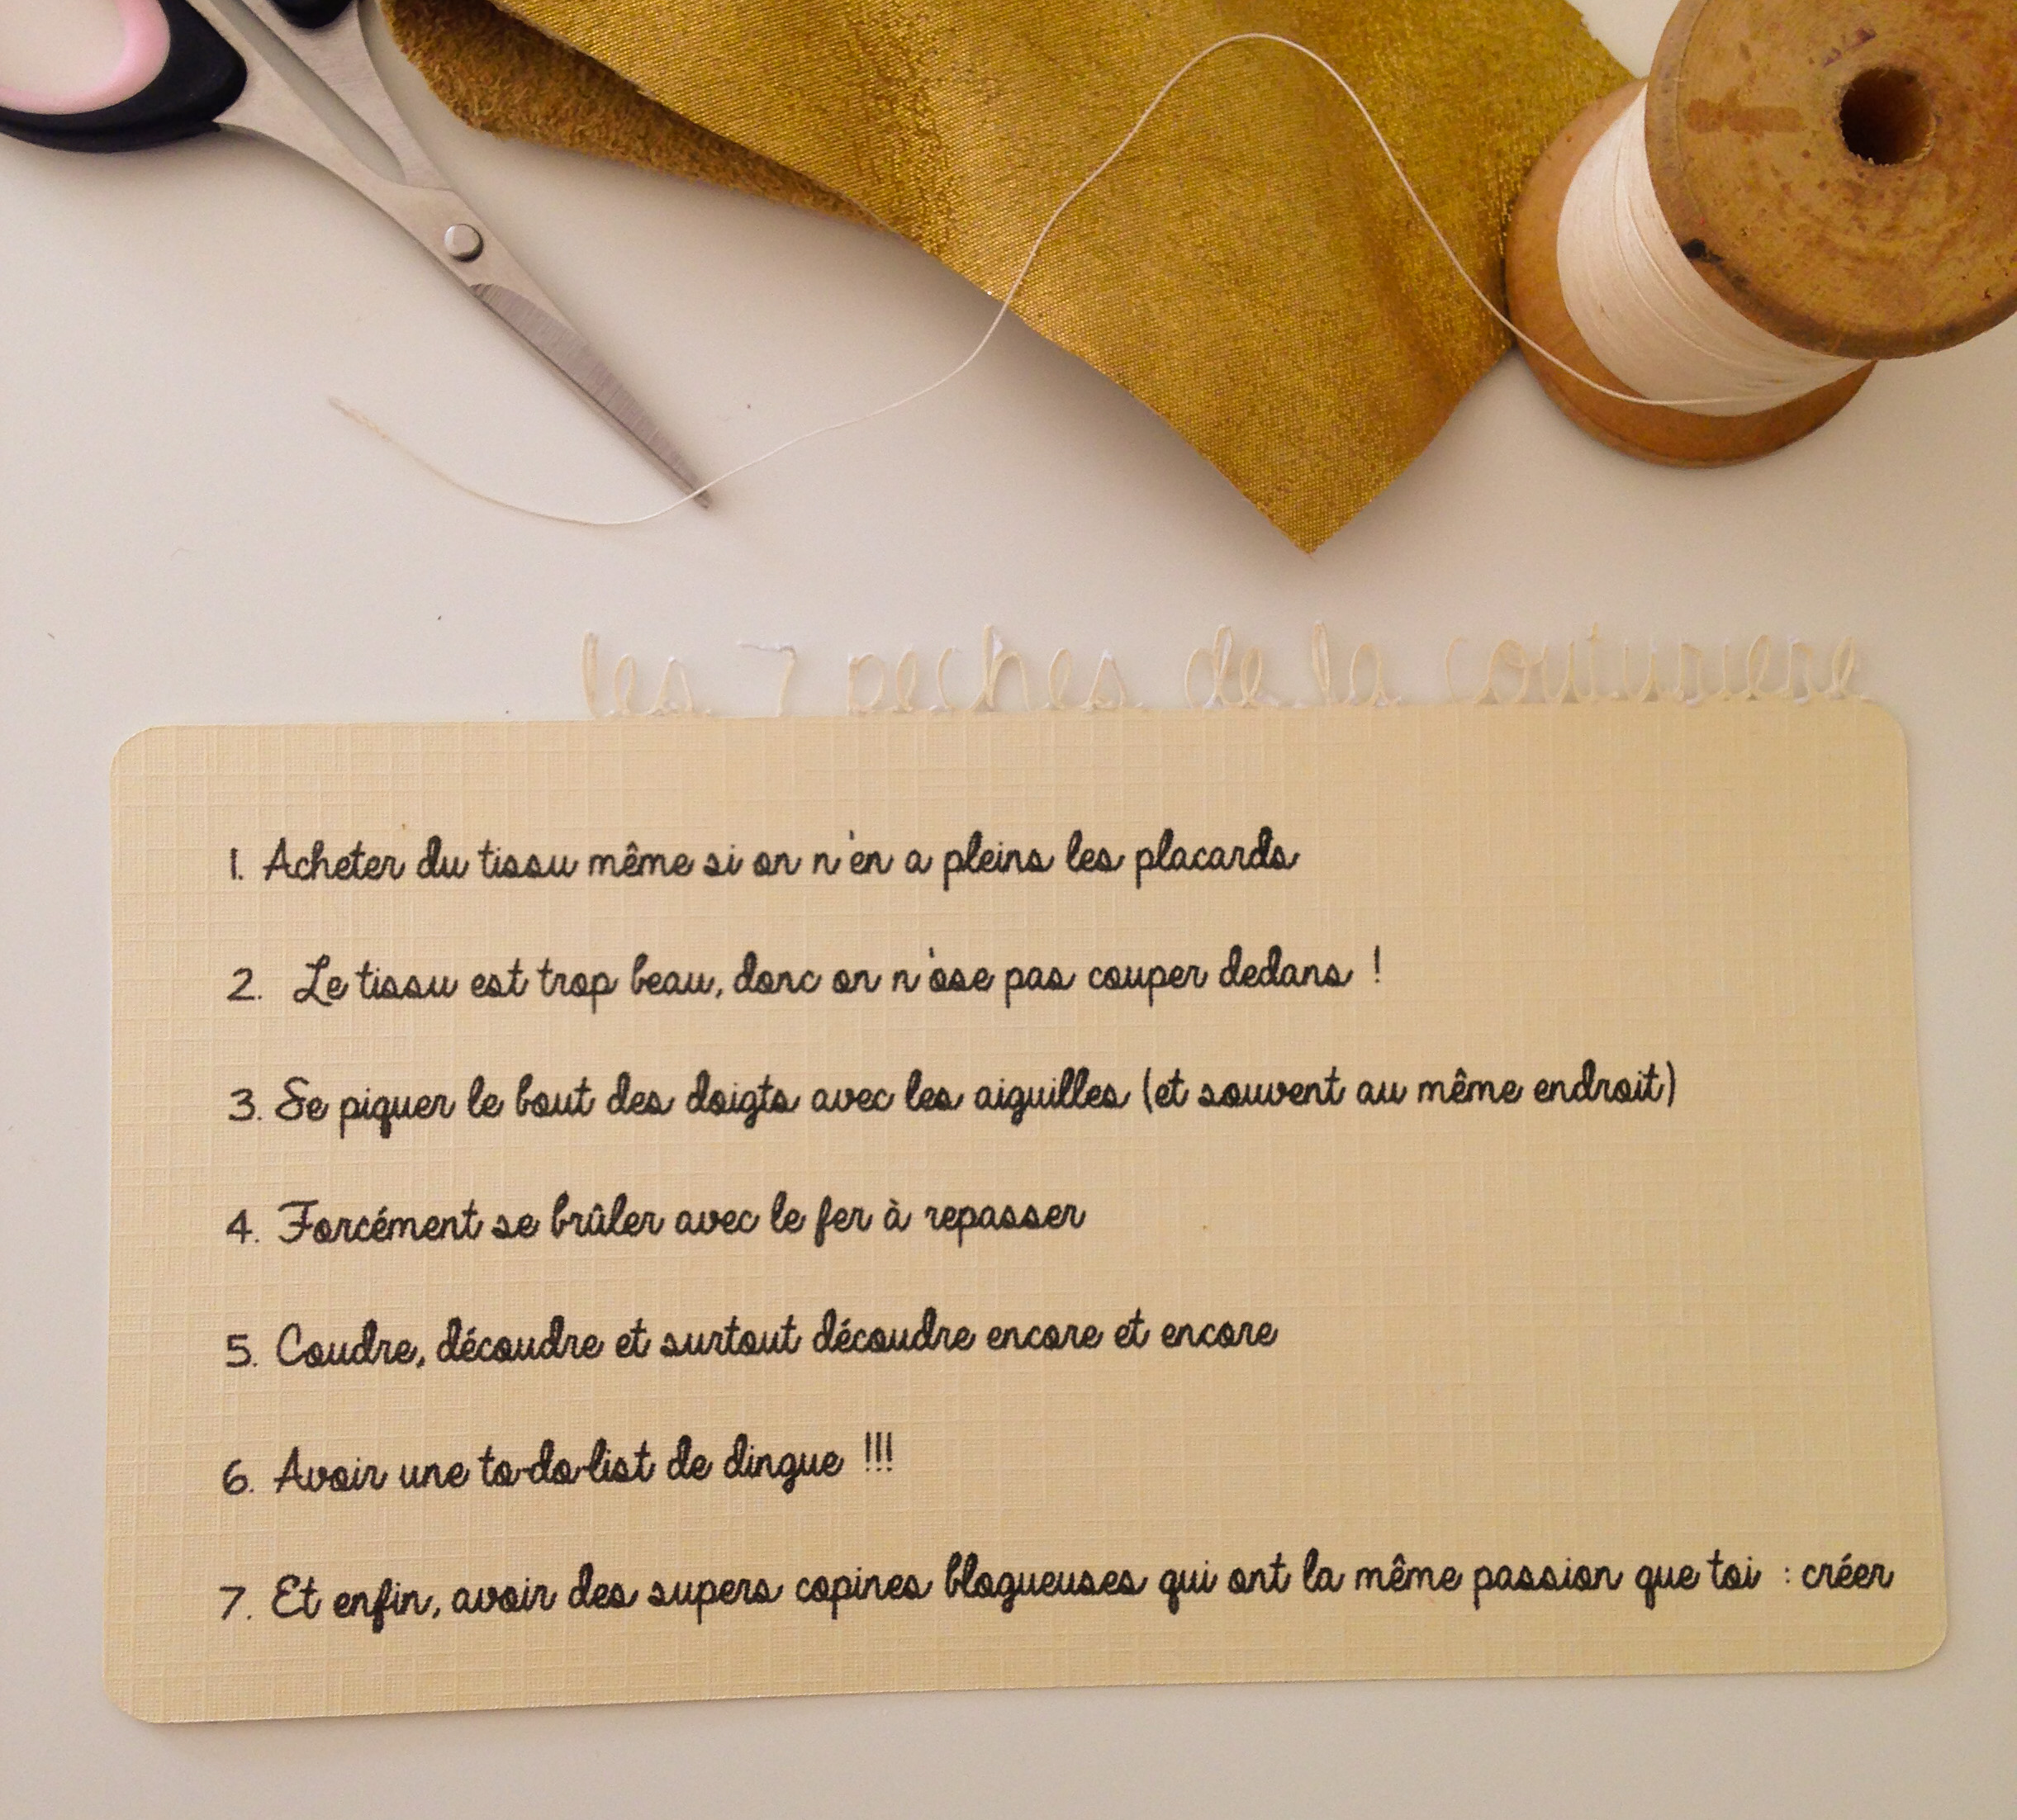 les 7 peches de la couturiere
1. Acheter du tissu même si on n'en a pleins les placards
2. Le tissu est trop beau, donc on n'ose pas couper dedans !
3. Se piquer le bout des doigts avec les aiguilles (et souvent au même endroit)
4. Forcément se brûler avec le fer à repasser
5. Coudre, découdre et surtout découdre encore et encore
6. Avoir une to-do-list de dingue !!!
7. Et enfin, avoir des supers copines blogueuses qui ont la même passion que toi : créer